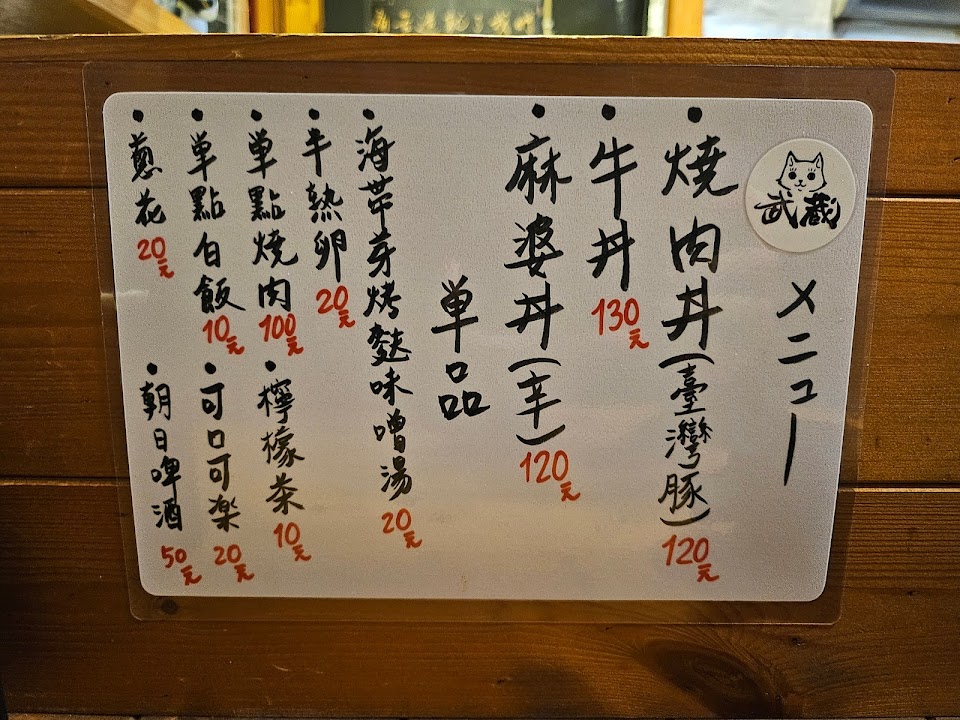 武蔵
メニュー
・燒肉丼(臺灣豚) 120元
・牛丼 130元
・麻婆丼(辛) 120元
単品
・海帯芽烤麩味噌湯 20元
・半熟卵 20元
・単點燒肉 100元
・単點白飯 10元
・蔥花 20元
・檸檬茶 10元
・可口可楽 20元
・朝日啤酒 50元